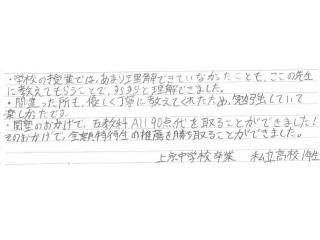 ・学校の授業では、あまり理解できていなかったことも、ここの先生
に教えてもらうことで、すらすらと理解できました。
・間違った所も、優しく丁寧に教えてくれたため、勉強していて
楽しかったです。
・関塾のおかげで、五教科All90点代を取ることができました!
そのおかげで、全期特待生の推薦を勝ち取ることができました。
上京中学校卒業 私立高校1年生